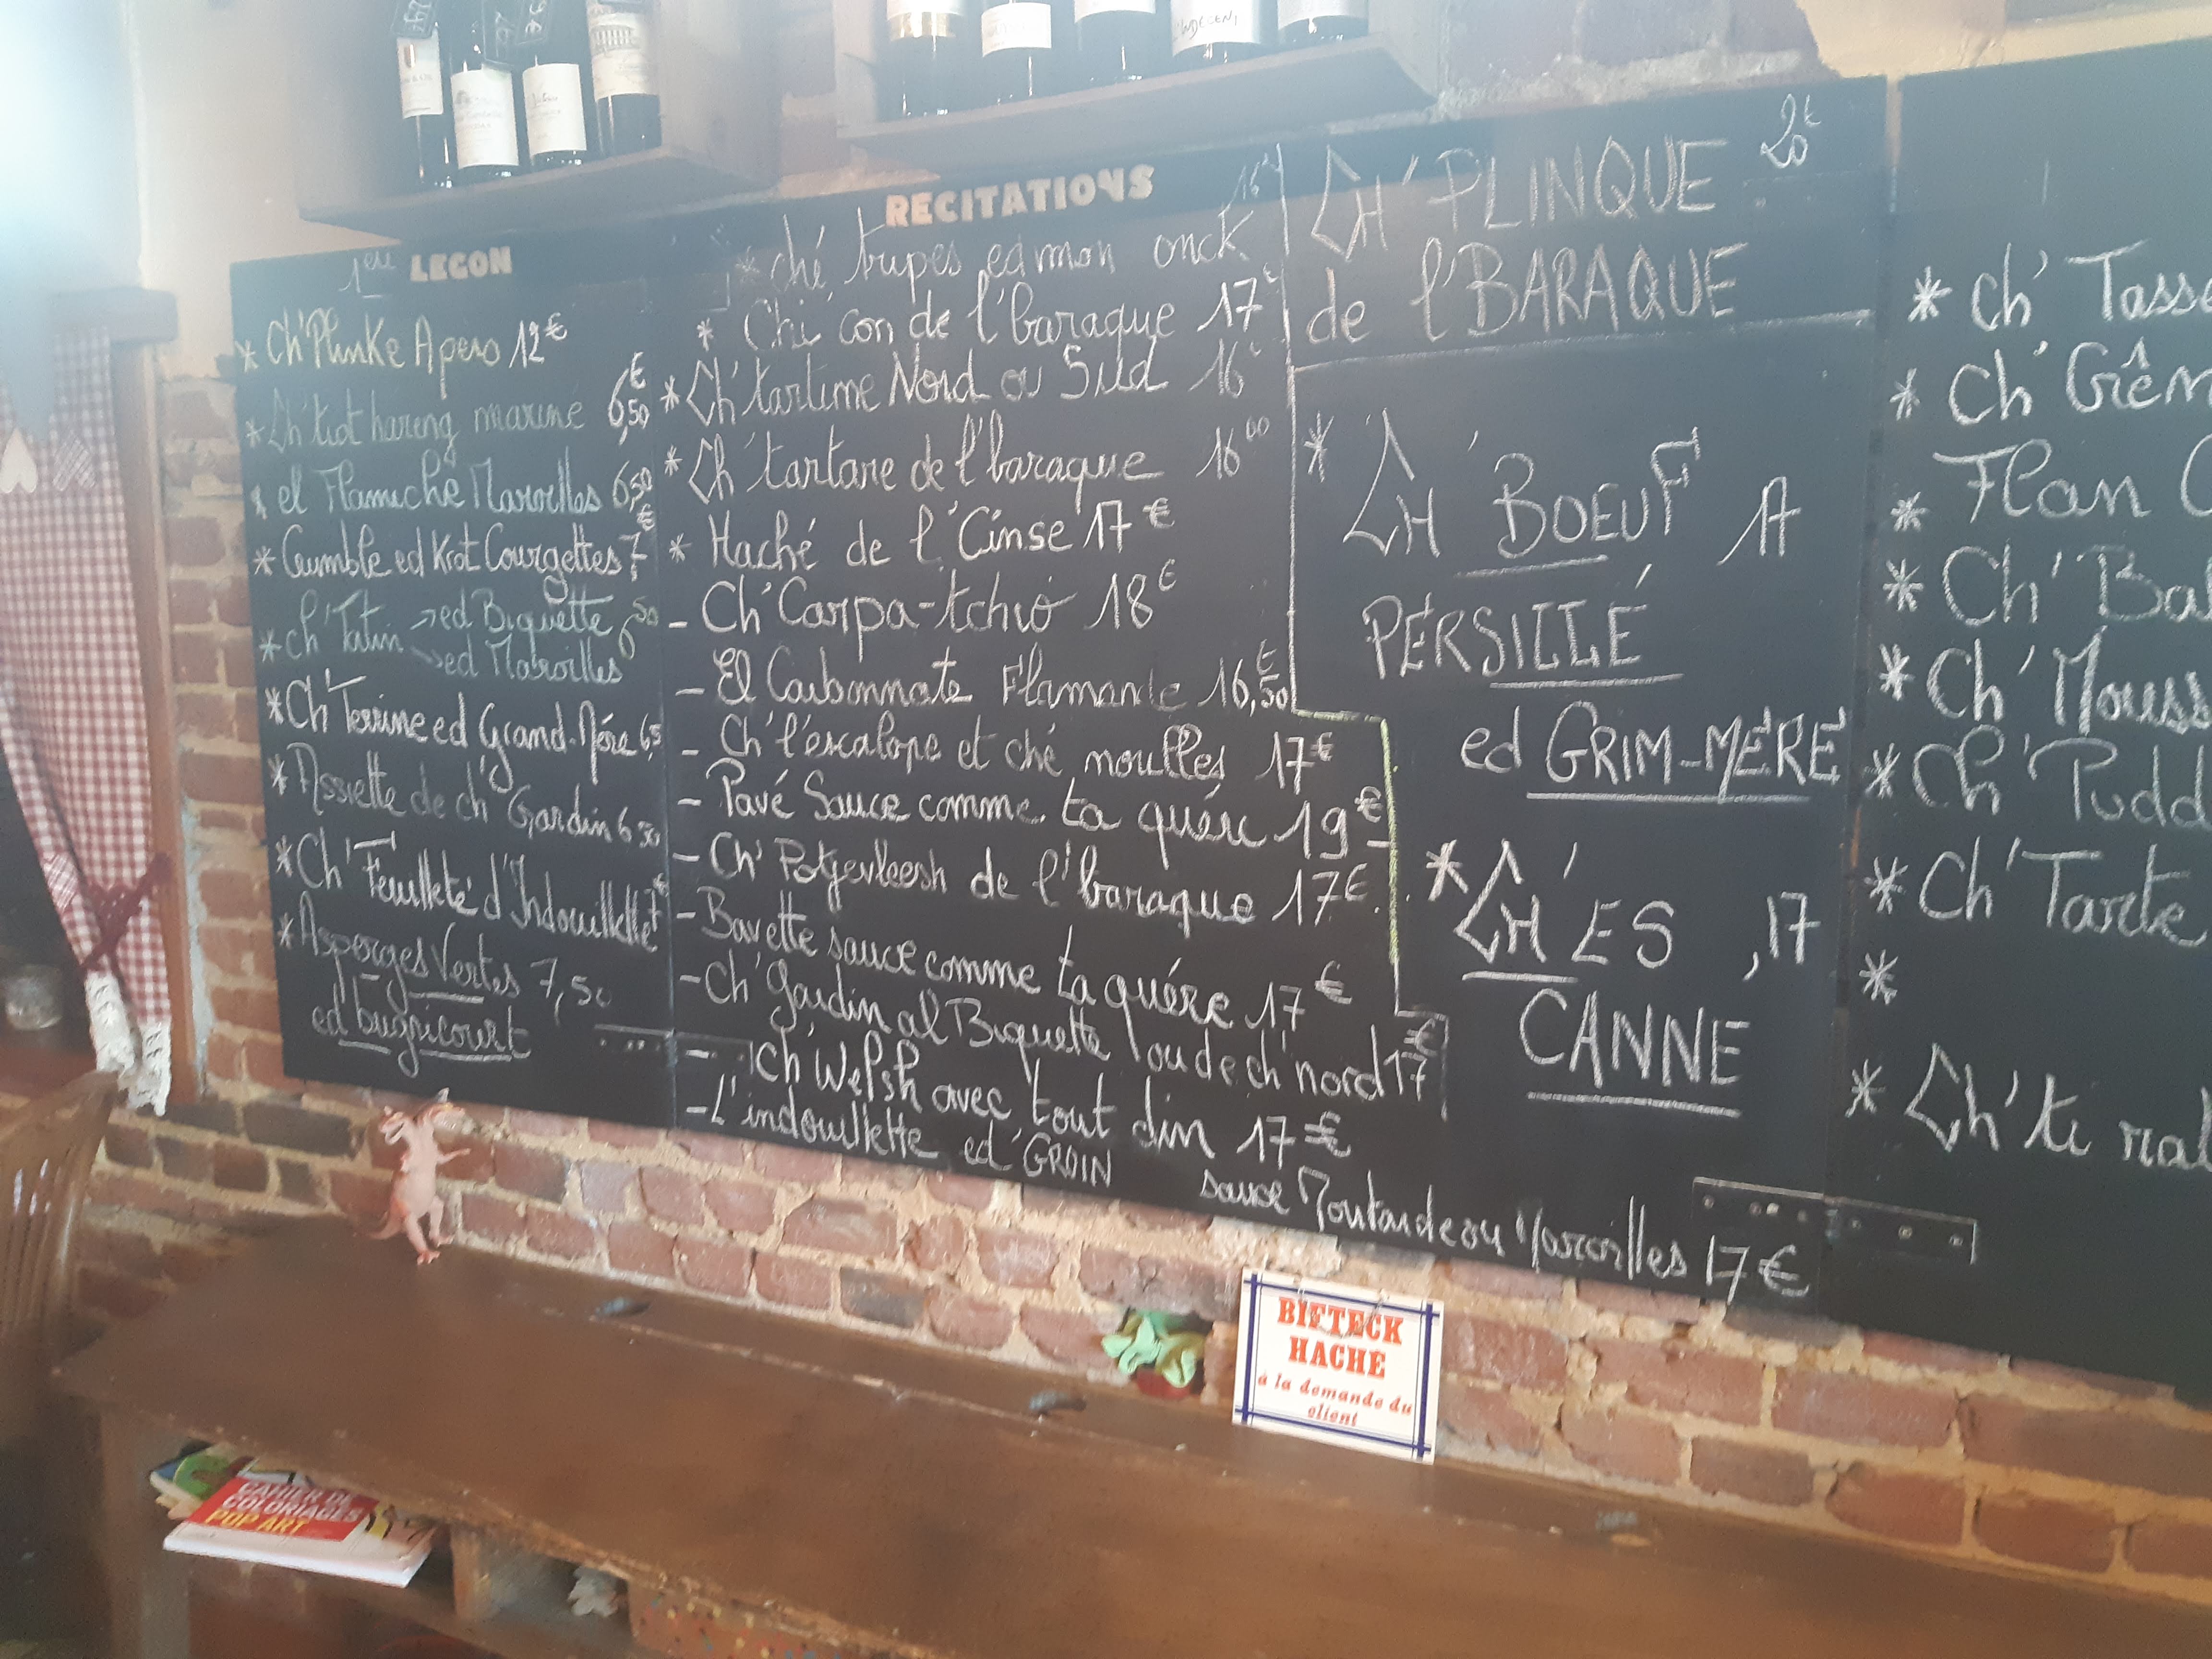 1ere LECON
* Ch'Plinke Apero 12€
* Ch'tiot hareng mariné 6,50€
* el Flamiche Maroilles 6,50€
* Crumble ed Krot Courgettes 7
* ch'Tatin → ed Biquette 6,50
→ ed Maroilles
* Ch'Terrine ed Grand-Mére 6,5
* Assiette de ch'Gardin 6 50
* Ch'Feuilleté d'Indouillette 7€
* Asperges Vertes 7,50
ed bugnicourt
RECITATIONS
* ché tripes ed mon onck 16€
* Chi con de l'baraque 17€
* Ch'tartine Nord ou Sud 16€
* Ch'tartare de l'baraque 16 00
* Haché de l'Cinse 17€
- Ch'Carpa-tchio 18€
- El Carbonnate Flamande 16,50€
- Ch'l'escalope et ché moulles 17€
- Pavé Sauce comme ta quére 19€
- Ch'Potjevleesh de l'baraque 17€
- Bavette sauce comme ta quére 17€
- Ch'Gardin al'Biquette ou de ch'nord 17€
- Ch'Welsh avec tout din 17€
- L'indouillette ed'GROIN
sauce Moutarde ou Maroilles 17€
CH'PLINQUE 20€
de l'BARAQUE
* CH'BOEUF 17
PERSILLÉ
ed GRIM-MÉRE
* CH'ES ,17
CANNE
* Ch'Tass
* Ch'Crêm
* Flan
* Ch'Ba
* Ch'Mouss
* Ch'Pudd
* Ch'Tarte
*
* Ch'ti
BIFTECK
HACHÉ
à la demande du
client
CAHIER DE
COLORIAGES
POP ART